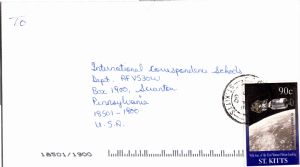 To
International Correspondence Schools
Dept. AFVS30W
Box 1900, Scranton
Pennsylvania
18501 - 1900
U.S.A.
90c
ST. KITTS
18501/1900